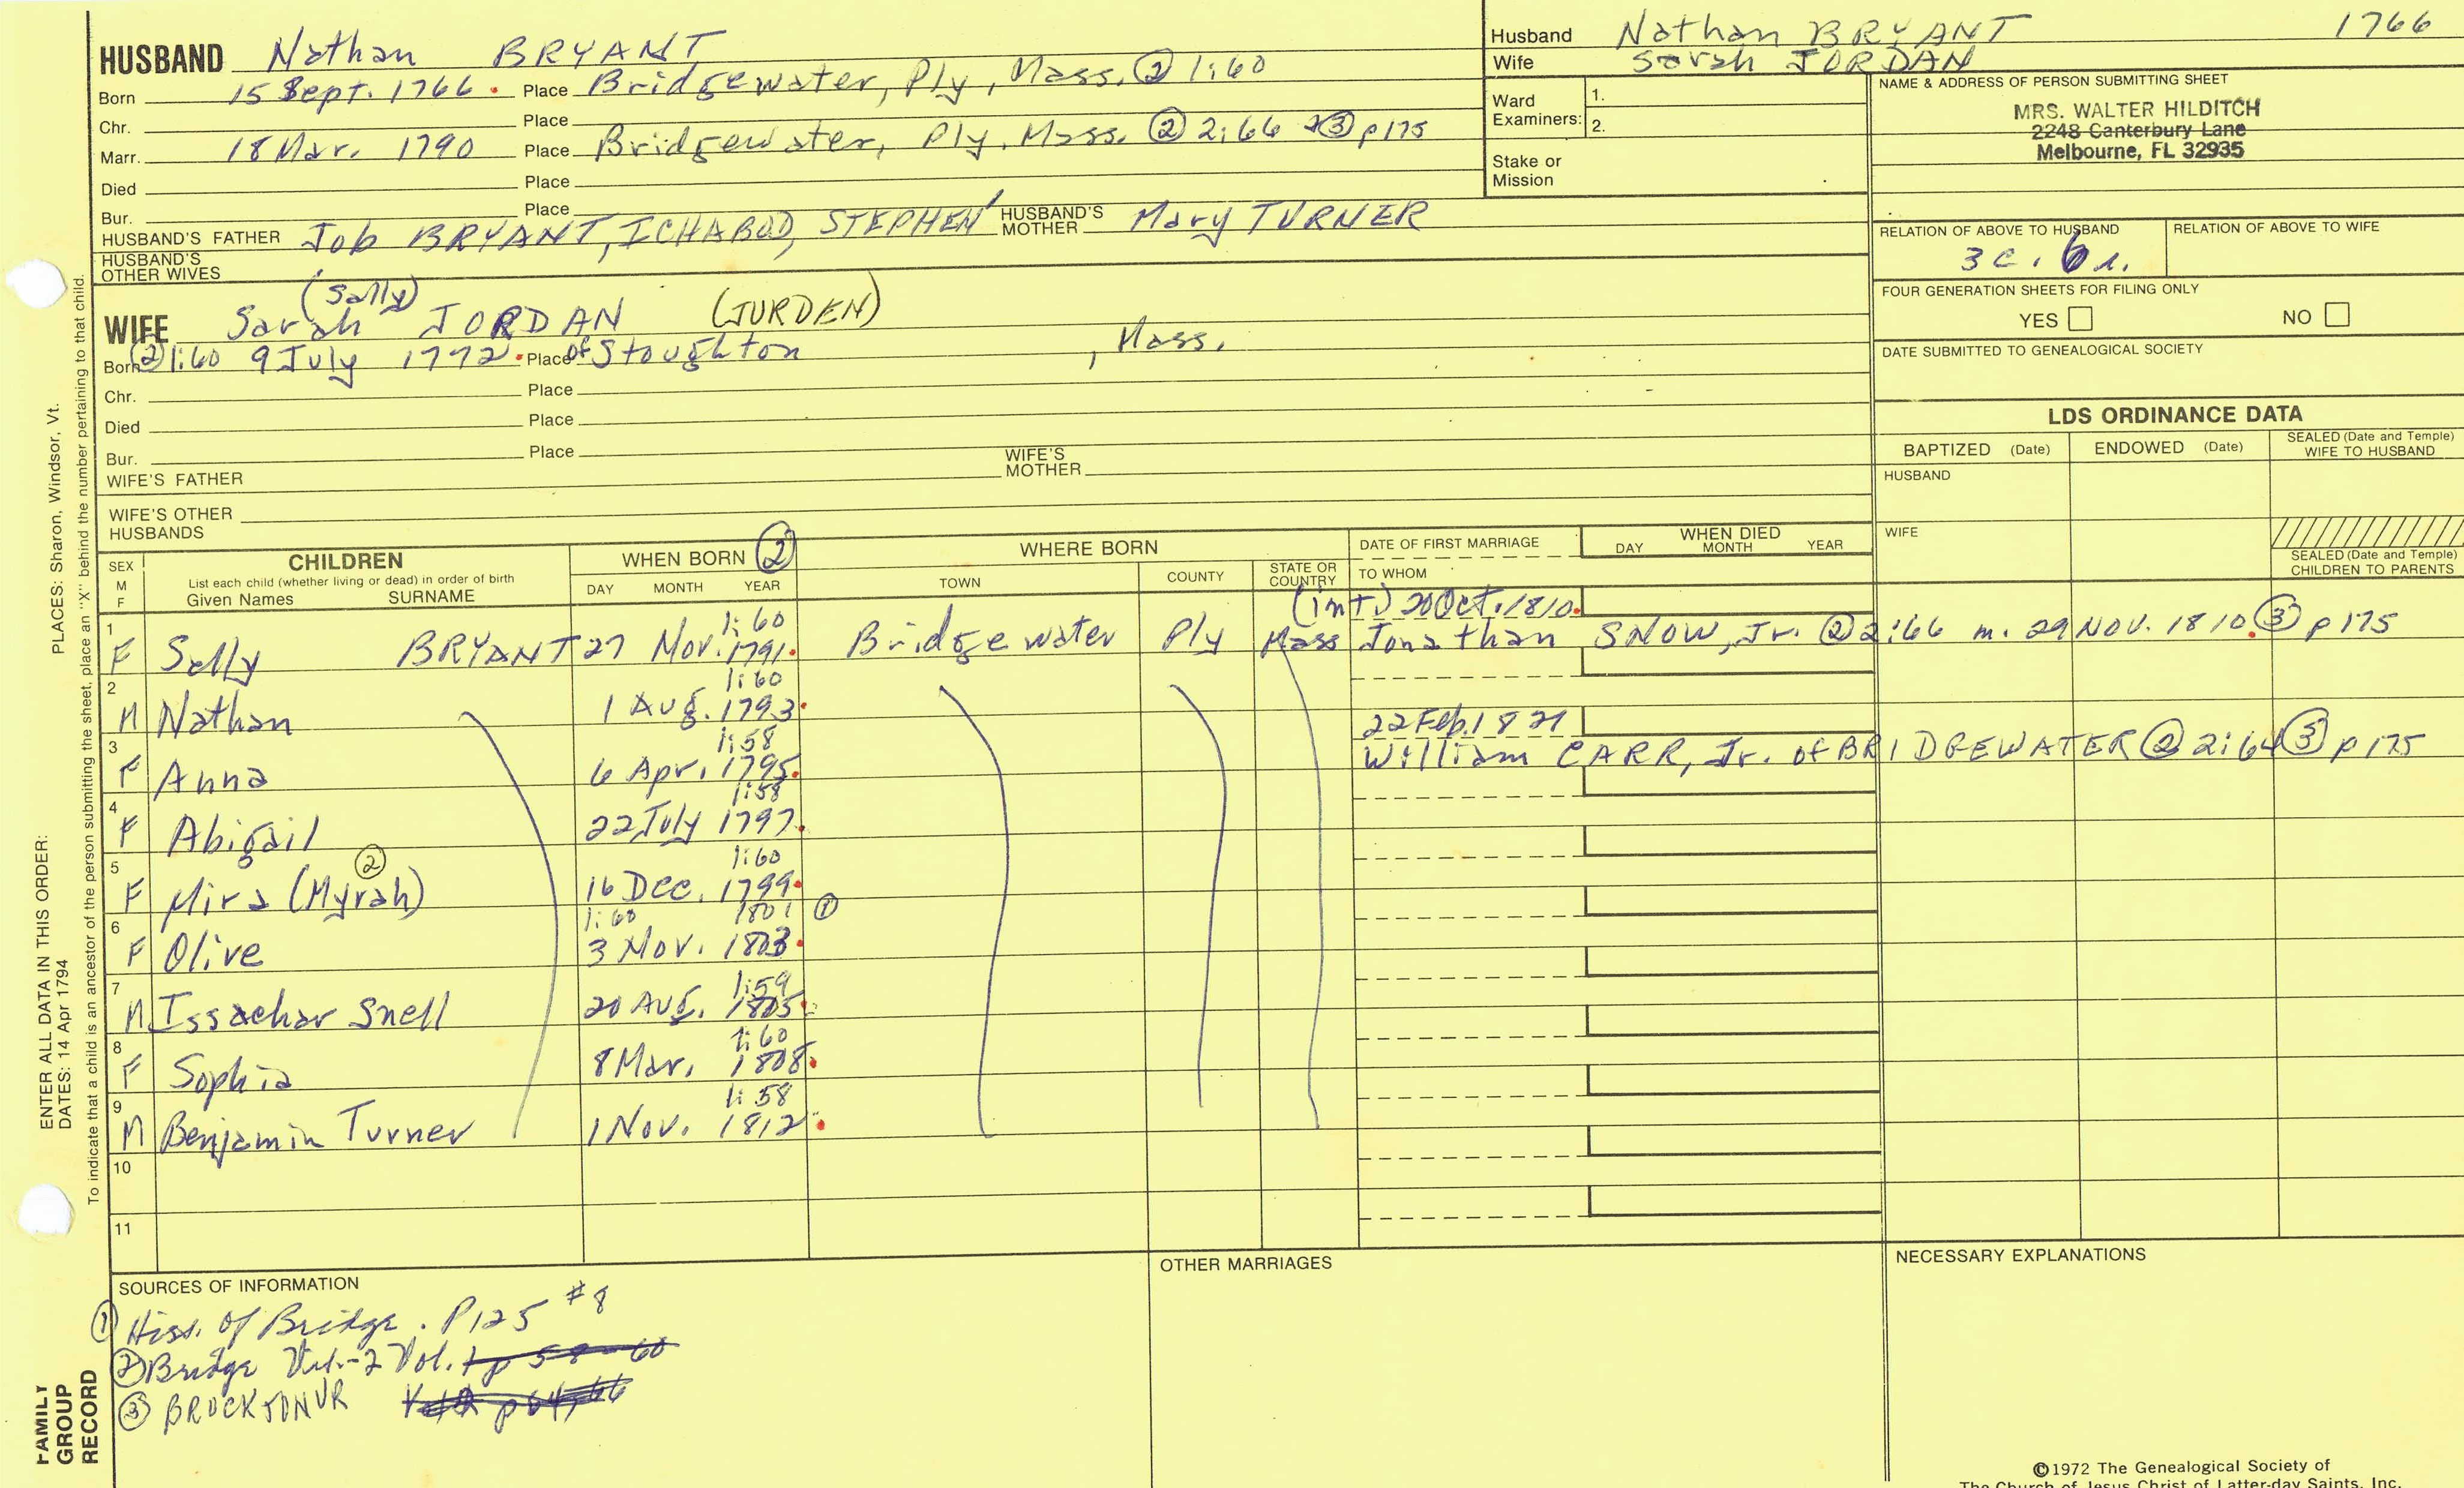 HUSBAND Nathan BRYANT
Born 15 Sept. 1766. Place Bridgewater, Ply, Mass. ② 1:60
Chr. Place
Marr. 18 Mar. 1790 Place Bridgewater, Ply. Mass. ② 2:66 ③ p175
Died Place
Bur. Place
HUSBAND'S FATHER Job BRYANT, ICHABOD, STEPHEN' HUSBAND'S MOTHER Mary TURNER
HUSBAND'S OTHER WIVES
(Sally)
WIFE Sarah JORDAN (JURDEN)
Born ② 1:60 9 July 1772. Place of Stoughton , Mass.
Chr. Place
Died Place
Bur. Place
WIFE'S FATHER WIFE'S MOTHER
WIFE'S OTHER HUSBANDS
Husband Nathan BRYANT 1766
Wife Sarah JORDAN
Ward Examiners: 1.
2.
Stake or Mission
NAME & ADDRESS OF PERSON SUBMITTING SHEET
MRS. WALTER HILDITCH
2248 Canterbury Lane
Melbourne, FL 32935
RELATION OF ABOVE TO HUSBAND RELATION OF ABOVE TO WIFE
3 c. 6 r.
FOUR GENERATION SHEETS FOR FILING ONLY
YES NO
DATE SUBMITTED TO GENEALOGICAL SOCIETY
LDS ORDINANCE DATA
BAPTIZED (Date) ENDOWED (Date) SEALED (Date and Temple) WIFE TO HUSBAND
HUSBAND
WIFE
SEALED (Date and Temple) CHILDREN TO PARENTS
SEX M F CHILDREN WHEN BORN ② WHERE BORN DATE OF FIRST MARRIAGE WHEN DIED
List each child (whether living or dead) in order of birth
Given Names SURNAME DAY MONTH YEAR TOWN COUNTY STATE OR COUNTRY TO WHOM DAY MONTH YEAR
1:60 (int) 20 Oct. 1810.
1 F Sally BRYANT 27 Nov. 1791. Bridgewater Ply Mass Jonathan SNOW, Jr. ② 2:66 m. 29 NOV. 1810. ③ p175
1:60
2 M Nathan 1 Aug. 1793.
1:58 22 Feb. 1821
3 F Anna 6 Apr. 1795. William CARR, Jr. of BRIDGEWATER ② 2:64 ③ p175
1:58
4 F Abigail 22 July 1797.
② 1:60
5 F Mira (Myrah) 16 Dec. 1799.
1:60 1801 ①
6 F Olive 3 Nov. 1803.
1:59
7 M Issachar Snell 20 Aug. 1805.
1:60
8 F Sophia 8 Mar. 1808.
1:58
9 M Benjamin Turner 1 Nov. 1812.
10
11
SOURCES OF INFORMATION
① Hist. of Bridge. P125 #8
② Bridge Vit.-2 Vol. 1 p 58-60
③ BROCKTON VR p 64, 66
OTHER MARRIAGES
NECESSARY EXPLANATIONS
©1972 The Genealogical Society of
The Church of Jesus Christ of Latter-day Saints, Inc.
ENTER ALL DATA IN THIS ORDER: PLACES: Sharon, Windsor, Vt.
DATES: 14 Apr 1794
To indicate that a child is an ancestor of the person submitting the sheet, place an "X" behind the number pertaining to that child.
FAMILY
GROUP
RECORD